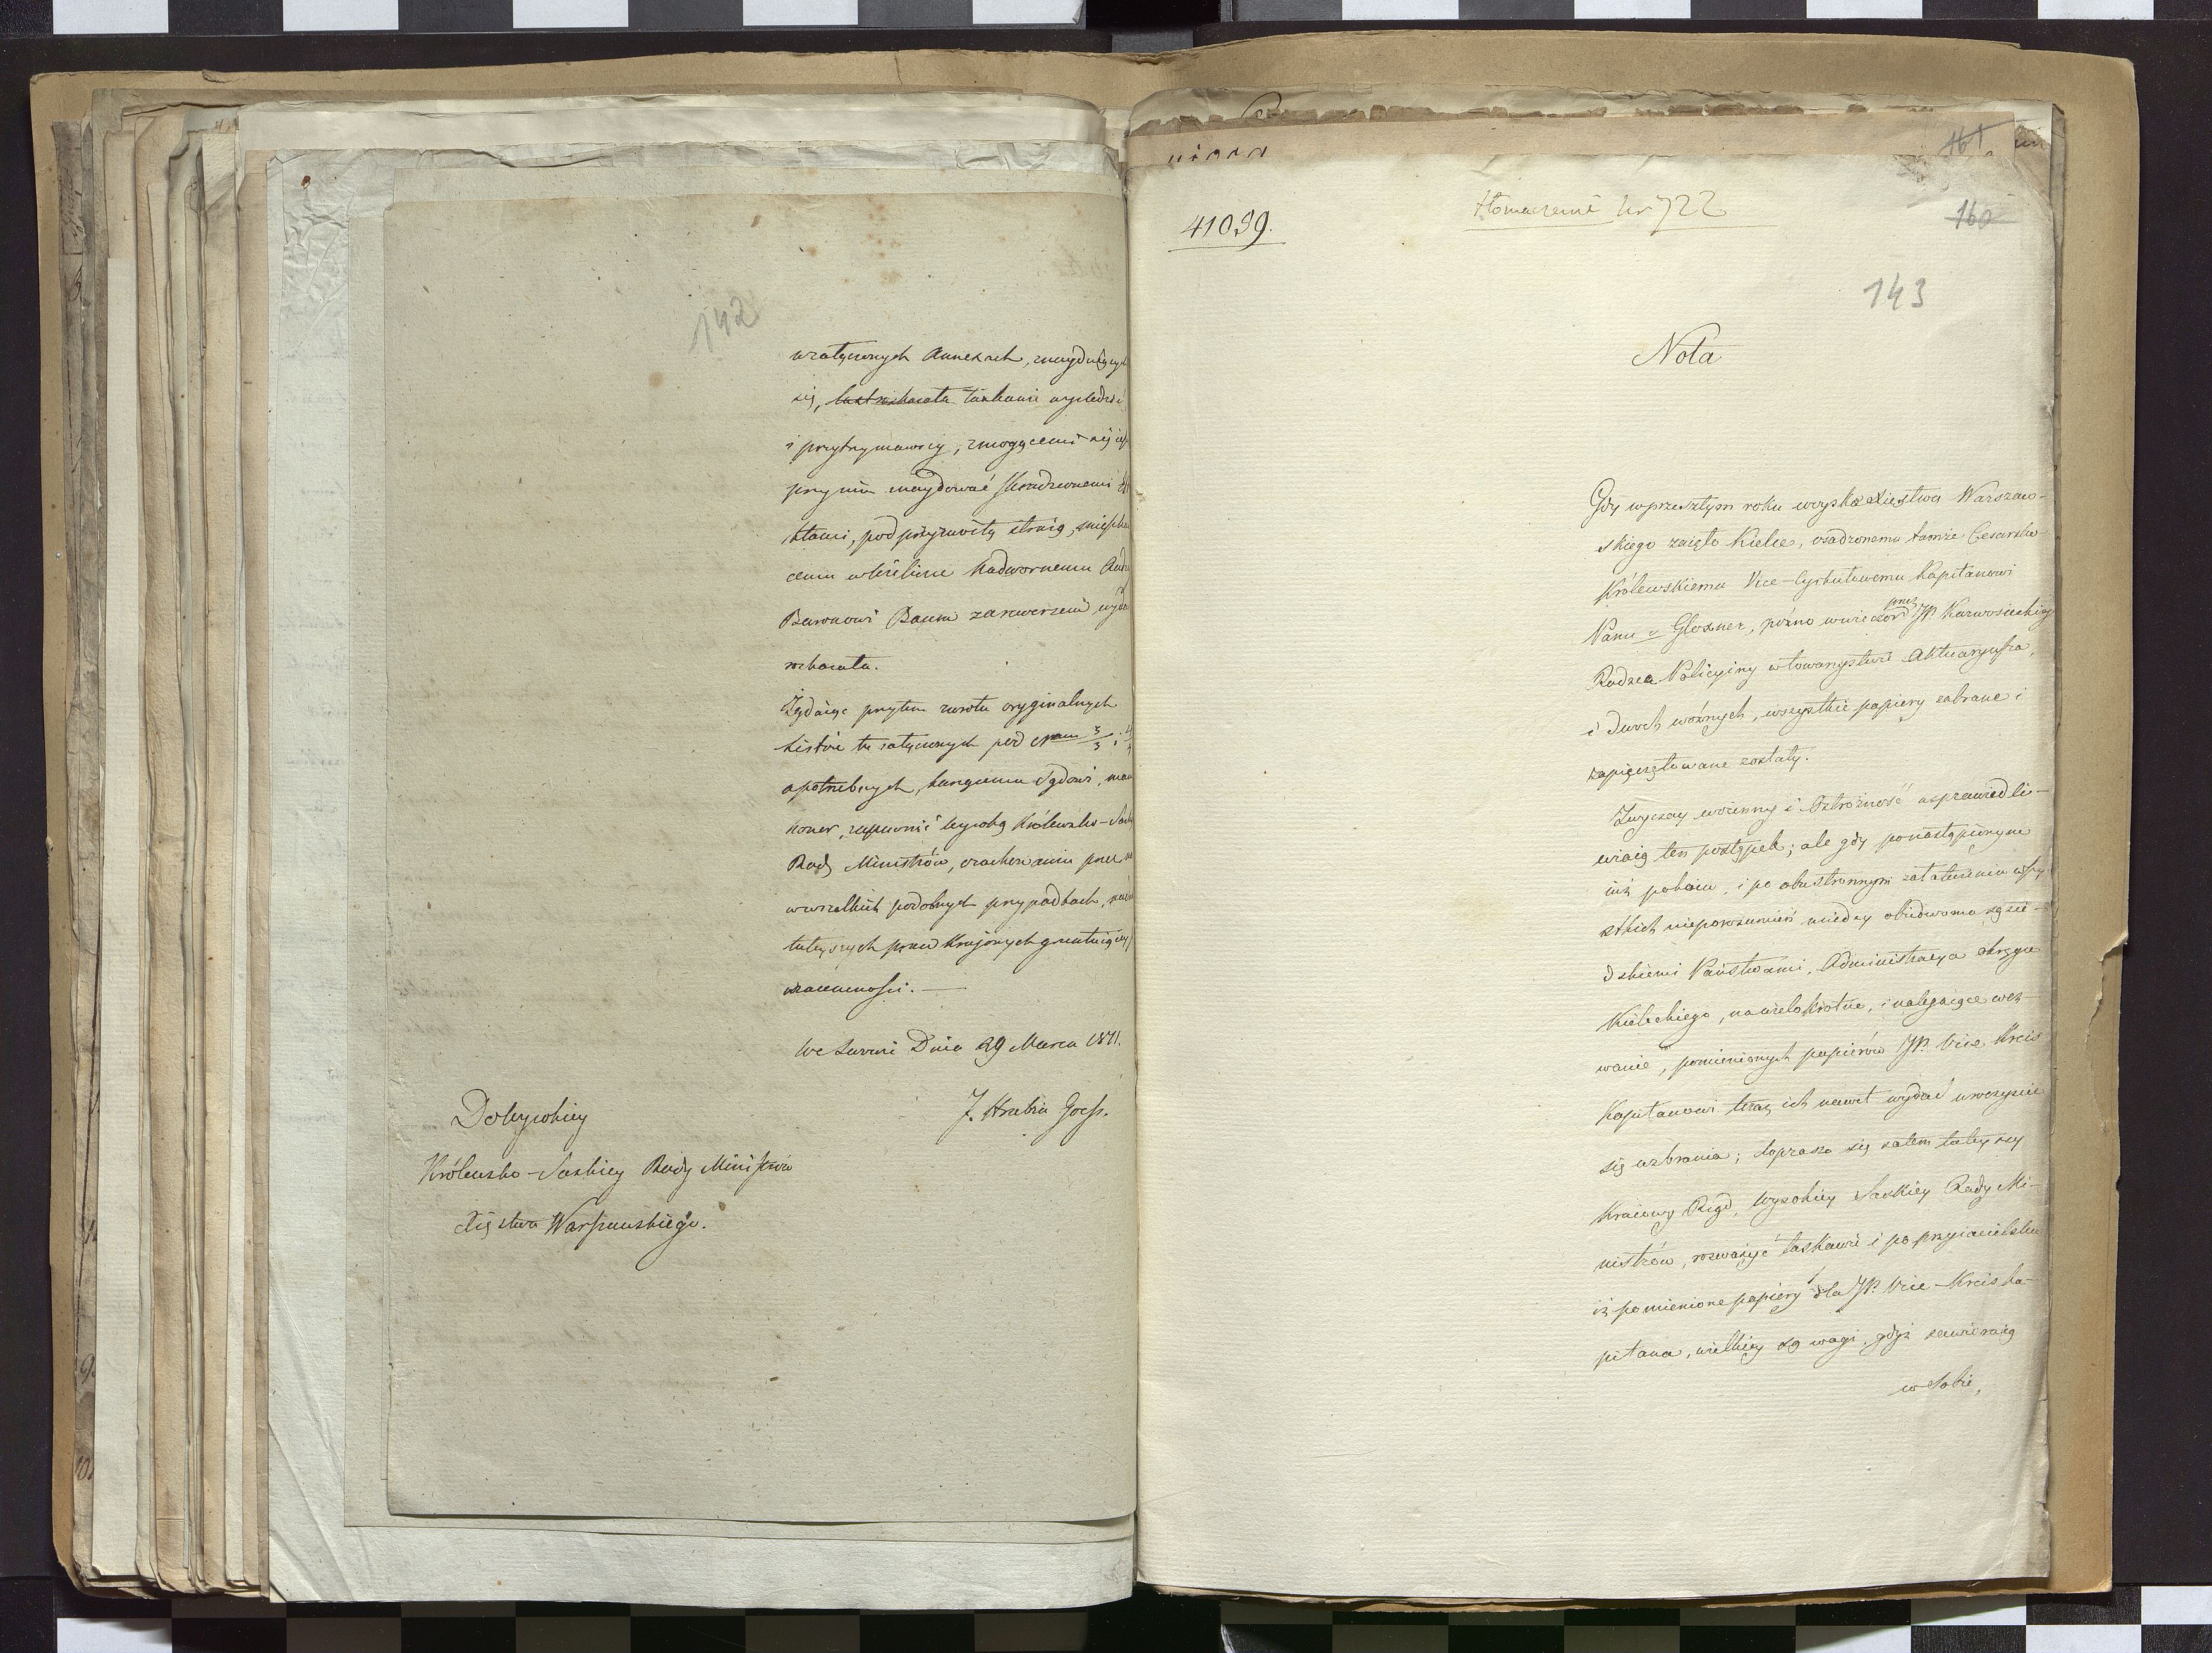 142
w załączonych Annexach, znayduiących
się, łaskawie wyśledzić
i przytrzymawszy, z mogącemi się
przy nim znaydować skradzionemi
pod przyzwoitą strażą,
Nadwornemu
Baronowi Baum za rewersem
rozkazała.
Żądaiąc przytem zwrotu oryginalnych
listów tu załączonych pod 3/3 i
a potrzebnych, karzącemu Sądowi, ma
honor, zapewnić wysoką Królewsko-Saską
Radę Ministrów, o zachowaniu przez
wszelkich podobnych przypadkach,
tuteyszych praw Krajowych
wzaiemności. —
We Lwowie Dnia 29 Marca 1811.
J. Hrabia Goess.
Do Wysokiey
Królewsko-Saskiey Rady Ministrów
Xięstwa Warszawskiego.
161
160
41039.
tłomaczenie Nr 722
143
Nota
Gdy w przeszłym roku woysko Xięstwa Warszaw-
skiego zaięło Kielce, osadzonemu tamże Cesarsko
Królewskiemu Vice-Cyrkułowemu Kapitanowi
Panu v Glosner, późno w wieczór przez JP.
Radzcę Policyiny w towarzystwie Aktuaryusza,
i dwóch woźnych, wszystkie papiery zabrane i
zapieczętowane zostały.
Zwyczay woienny i Ostrożność usprawiedli-
wiaią ten postępek; ale gdy po nastąpionym
iuż pokoiu, i po obustronnym załatwieniu wszy-
stkich nieporozumień między obudwoma sąsie-
dzkiemi Państwami, Administracya okręgu
Kieleckiego, na wielokrotne, i nalegaiące wez-
wanie, pomienionych papierów JP. Vice Kreis
Kapitanowi teraz ich nawet wydać uroczyście
się wzbrania; uprasza się zatem tuteyszy
Kraiowy Rząd, Wysokiey Saskiey Rady Mi-
nistrów, rozważyć łaskawie i po przyiacielsku
iż pomienione papiery dla JP. Vice-Kreis ka-
pitana, wielkiey są wagi, gdyż zawieraią
w sobie,